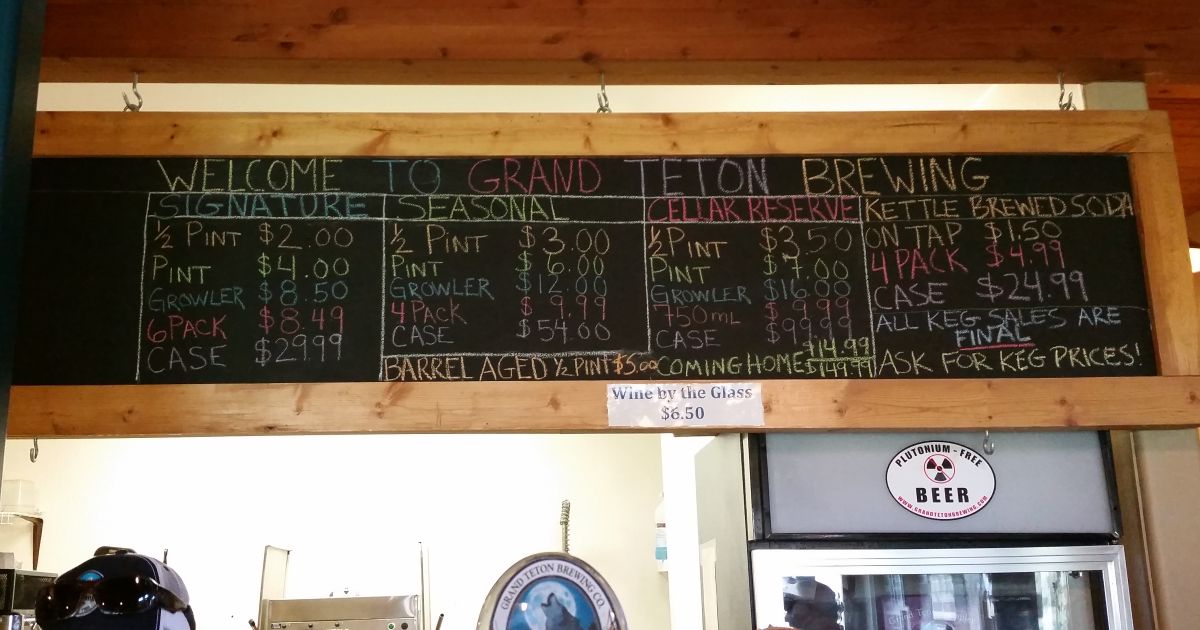 WELCOME TO GRAND TETON BREWING
SIGNATURE
½ PINT $2.00
PINT $4.00
GROWLER $8.50
6PACK $8.49
CASE $29.99
SEASONAL
½ PINT $3.00
PINT $6.00
GROWLER $12.00
4 PACK $9.99
CASE $54.00
BARREL AGED ½ PINT $5.00
CELLAR RESERVE
½ PINT $3.50
PINT $7.00
GROWLER $16.00
750ML $9.99
CASE $99.99
COMING HOME $14.99
$149.99
KETTLE BREWED SODA
ON TAP $1.50
4 PACK $4.99
CASE $24.99
ALL KEG SALES ARE
FINAL
ASK FOR KEG PRICES!
Wine by the Glass
$6.50
PLUTONIUM - FREE
BEER
WWW.GRANDTETONBREWING.COM
GRAND TETON BREWING CO.